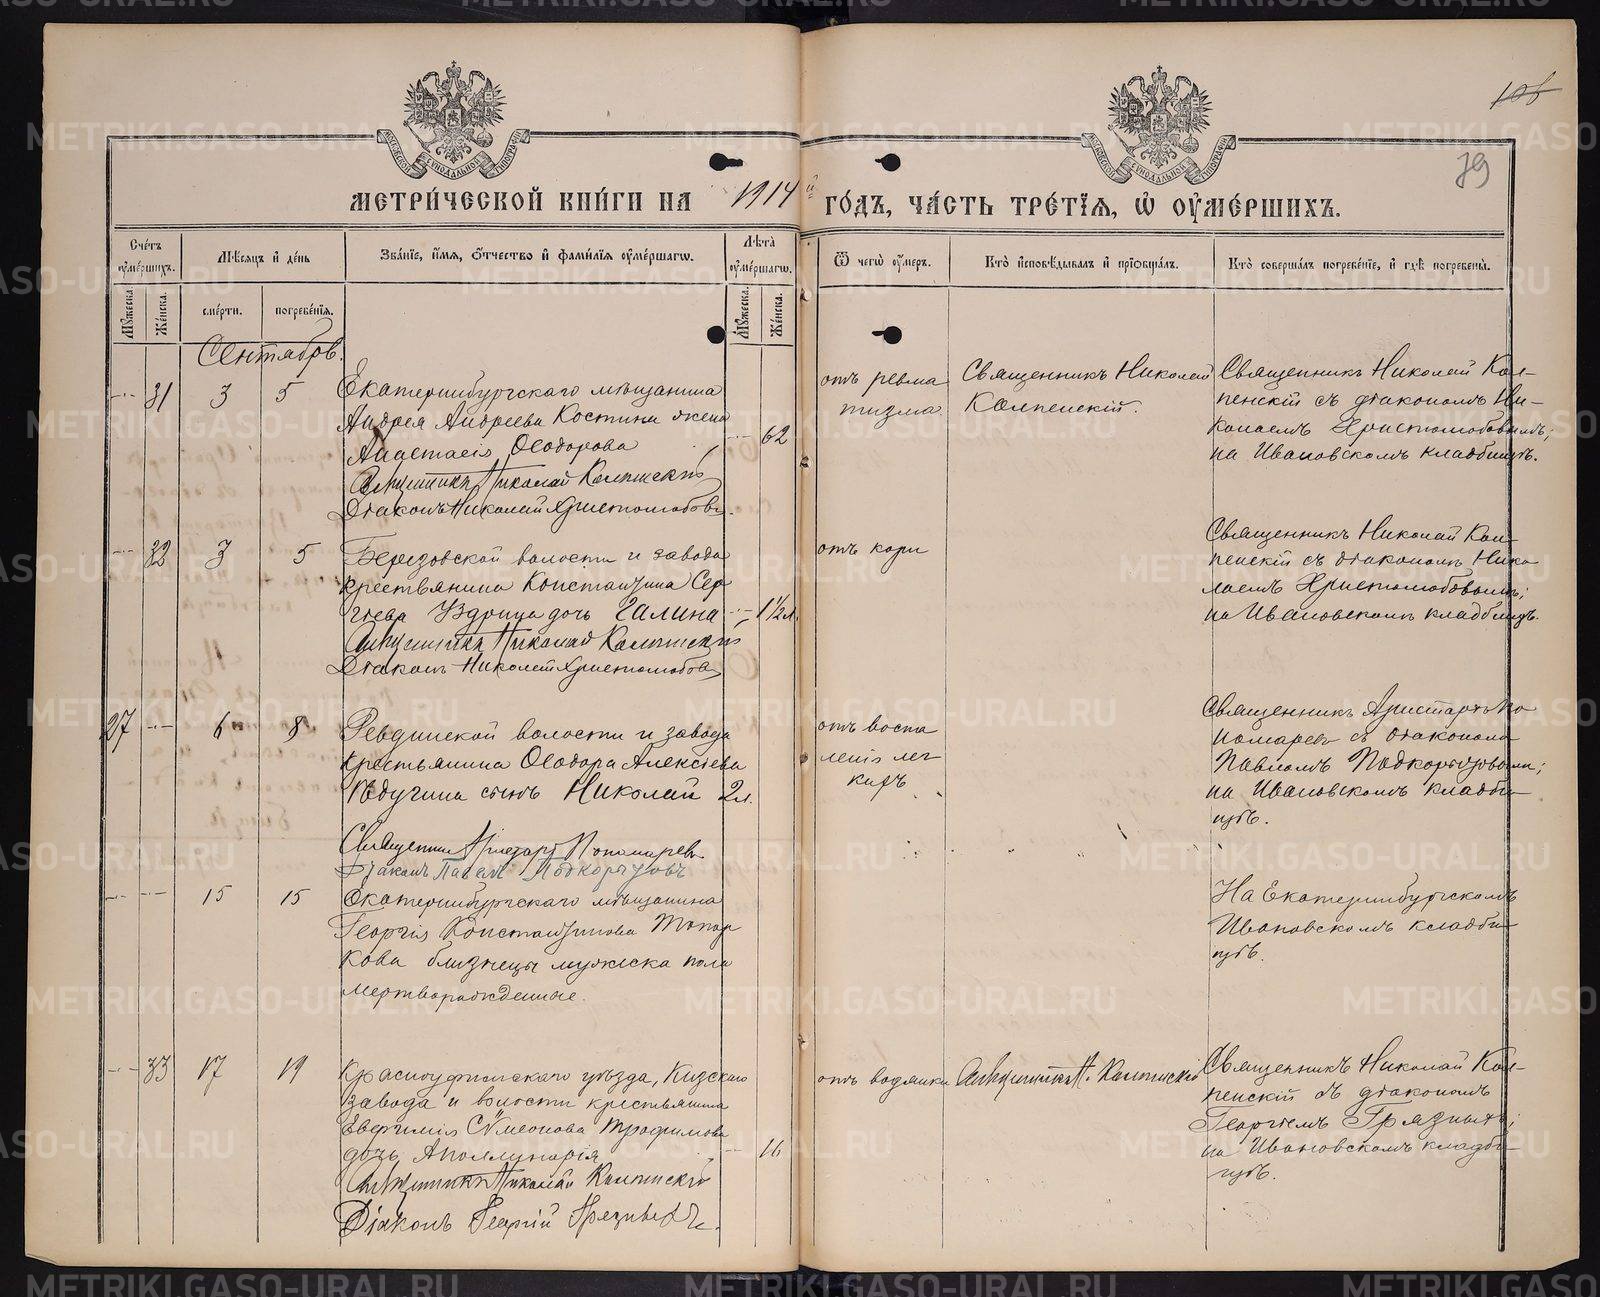 106
79
МЕТРИ́ЧЕСКОЙ КНИ́ГИ НА 1914 й ГО́ДЪ, ЧА́СТЬ ТРЕ́ТІЯ, Ѡ ОУ҆МЕ́РШИХЪ.
Сче́тъ оу҆ме́ршихъ.
Мѣ́сяцъ и҆ де́нь
Зва́нїе, и҆́мя, ѻ҆́тчество и҆ фами́лїя оу҆ме́ршагѡ.
Лѣ́та оу҆ме́ршагѡ.
Ѿ чегѡ̀ оу҆́меръ.
Кто̀ и҆сповѣ́дывалъ и҆ прїѡбща́лъ.
Кто̀ соверша́лъ погребе́нїе, и҆ гдѣ̀ погребены̀.
Му́жеска.
Же́нска.
сме́рти.
погребе́нїя.
Му́жеска.
Же́нска.
Сентябрь.
31 3 5
Екатеринбургскаго мѣщанина
Андрея Андреева Костина жена
Анастасія Ѳеодорова
62
Священникъ Николай Калпенскій
Діаконъ Николай Христолюбовъ.
отъ ревма
тизма.
Священникъ Николай
Калпенскій.
Священникъ Николай Кал-
пенскій съ діакономъ Ни-
колаемъ Христолюбовымъ;
на Ивановскомъ кладбищѣ.
32 3 5
Березовской волости и завода
крестьянина Константина Сер
гѣева дочь Галина
1½ л.
Священникъ Николай Калпенскій
Діаконъ Николай Христолюбовъ
отъ кори
Священникъ Николай Кал-
пенскій съ діакономъ Нико
лаемъ Христолюбовымъ;
на Ивановскомъ кладбищѣ.
27 6 8
Ревдинской волости и завода
крестьянина Ѳеодора Алексѣева
сынъ Николай 2 л.
Священникъ Аристархъ Пономаревъ
Діаконъ Павелъ Подкорытовъ
отъ воспа
ленія лег
кихъ
Священникъ Аристархъ По
номаревъ съ діакономъ
Павломъ Подкорытовымъ;
на Ивановскомъ кладби-
щѣ.
15 15
Екатеринбургскаго мѣщанина
Георгія Константинова Топор
кова близнецы мужеска пола
мертворожденные.
На Екатеринбургскомъ
Ивановскомъ кладби-
щѣ.
33 17 19
Красноуфимскаго уѣзда,
завода и волости крестьянина
Евѳимія Сѵмеонова Трофимова
дочь Аполлинарія
16
Священникъ Николай Калпенскій
Діаконъ Георгій Грязныхъ.
отъ водянки
Священникъ Н. Калпенскій
Священникъ Николай Кал-
пенскій съ діакономъ
Георгіемъ Грязныхъ;
на Ивановскомъ кладби-
щѣ.
METRIKI.GASO-URAL.RU